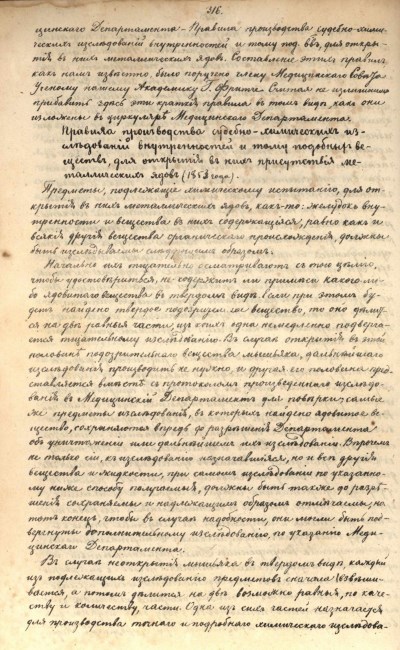 216.
цинскаго Департамента „Правила производства судебно-хими-
ческихъ изслѣдованій внутренностей и тому под. въ. для откры-
тія въ нихъ металлическихъ ядовъ. Составленіе этихъ правилъ
какъ намъ извѣстно, было поручено члену Медицинскаго Совѣта
Ученому нашему Академику Ю. Фрицше. Считаю не излишнимъ
прибавить здѣсь эти краткія правила въ томъ видѣ какъ они
изложены въ циркулярѣ Медицинскаго Департамента.
Правила производства судебно-химическихъ из-
слѣдованій внутренностей и тому подобныхъ ве-
ществъ, для открытія въ нихъ присутствія ме-
таллическихъ ядовъ (185 года).
Предметы, подлежащіе химическому испытанію, для от-
крытія въ нихъ металлическихъ ядовъ, какъ-то: желудокъ вну-
тренности и вещества въ нихъ содержащіяся, равно какъ и
всякія другія вещества органическаго происхожденія, должны
быть изслѣдываемы слѣдующимъ образомъ.
Начально ихъ тщательно осматриваютъ съ тою цѣлію,
чтобы удостовѣриться, не содержатъ ли примѣси какого ли-
бо ядовитаго вещества въ твердомъ видѣ. Если при этомъ бу-
детъ найдено твердое подозрительное вещество, то оно дѣлит-
ся на двѣ равныя части, изъ коихъ одна немедленно подверга-
ется тщательному изслѣдованію. Въ случаѣ открытія въ этой
половинѣ подозрительнаго вещества мышьяка, дальнѣйшаго
изслѣдованія производить не нужно, и другая его половина пред-
ставляется вмѣстѣ съ протоколомъ произведеннаго изслѣдо-
ванія въ Медицинскій Департаментъ для повѣрки; самые
же предметы изслѣдованія, въ которыхъ найдено ядовитое ве-
щество, сохраняются впредь до разрѣшенія Департамента
объ уничтоженіи или дальнѣйшемъ ихъ изслѣдованіи. Впрочемъ
не только сіи, къ изслѣдованію назначавшіяся, но и всѣ другія
вещества и жидкости, при самомъ изслѣдованіи по указанно-
му ниже способу получаемыя, должны быть также до разрѣ-
шенія сохраняемы и надлежащимъ образомъ отмѣчаемы, на
тотъ конецъ, чтобы въ случаѣ надобности, они могли быть под-
вергнуты дополнительному изслѣдованію, по указанію Меди-
цинскаго Департамента.
Въ случаѣ неоткрытія мышьяка въ твердомъ видѣ, каждый
изъ подлежащихъ изслѣдованію предметовъ сначала взвѣши-
вается, а потомъ дѣлится на двѣ возможно равныя, по каче-
ству и количеству, части. Одна изъ сихъ частей назначается
для производства точнаго и подробнаго химическаго изслѣдова-